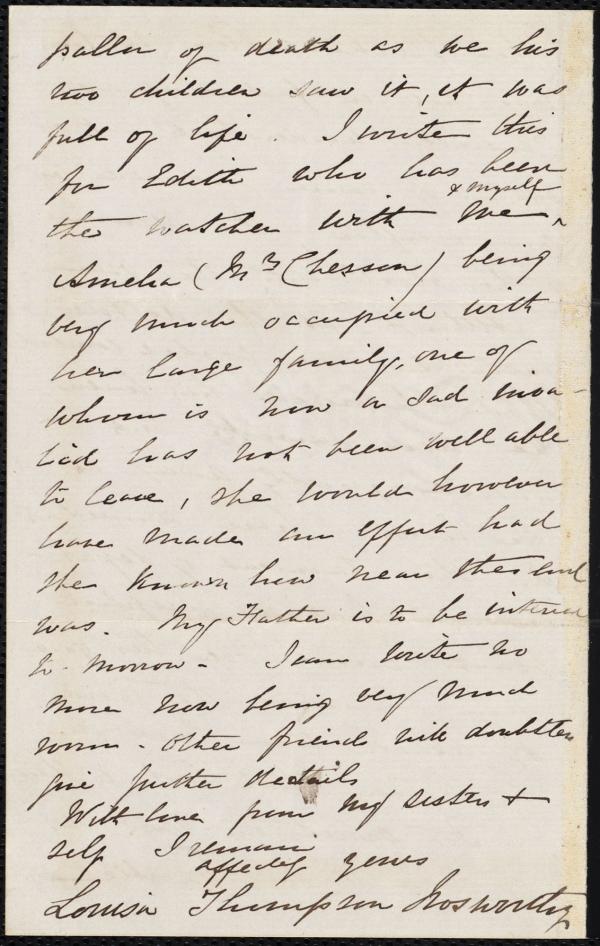 pallor of death as we his
two children saw it, it was
full of life. I write this
for Edith who has been
& myself
the watcher with me ^
Amelia (Mrs Chesson) being
very much occupied with
her large family, one of
whom is now a sad inva-
lid has not been well able
to leave, she would however
have made an effort had
she known how near the end
was. My Father is to be interred
to-morrow - I can write no
more now being very much
worn - other friends will doubtless
give further details
With love from my sisters &
self I remain
affectly yours
Louisa Thompson Nosworthy